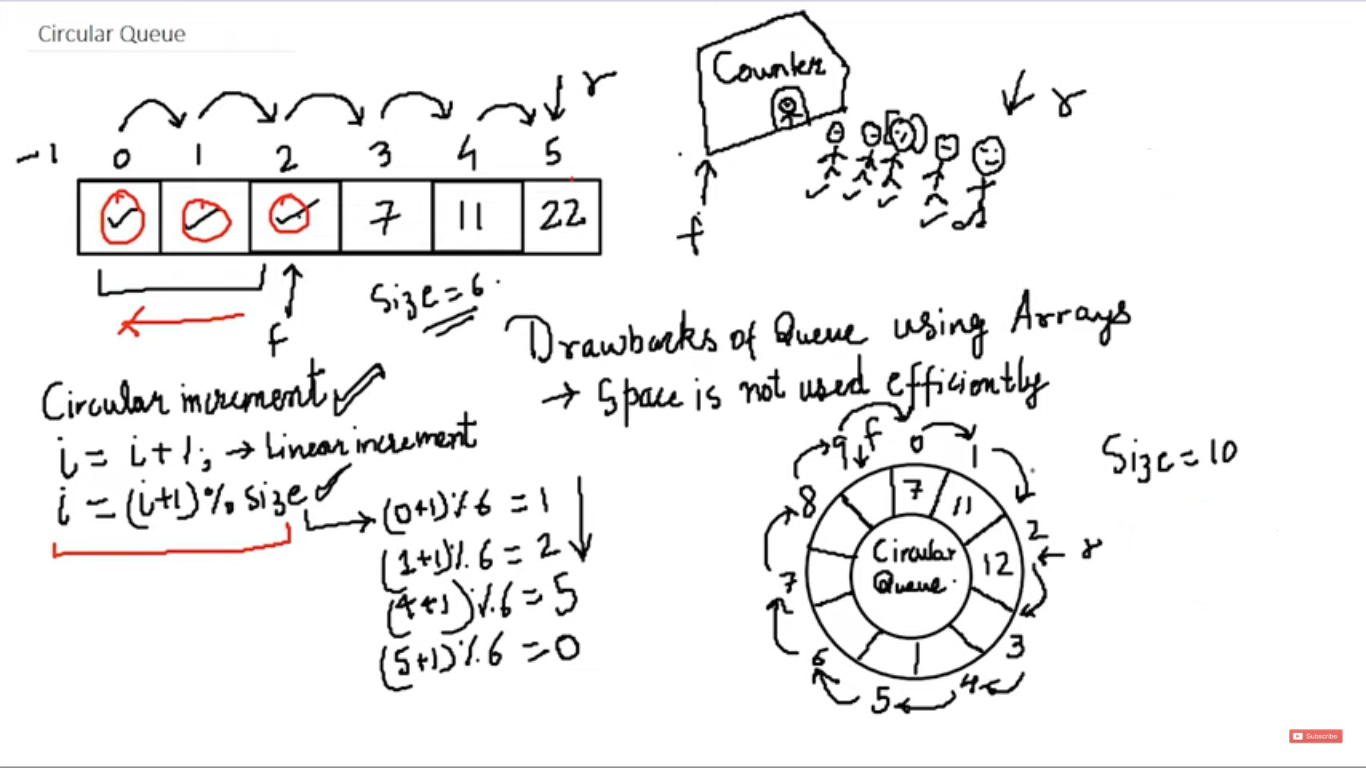 Circular Queue
r
-1 0 1 2 3 4 5
7 11 22
f
Size = 6
Counter
r
f
Drawbacks of Queue using Arrays
→ Space is not used efficiently
Circular increment
i = i+1; → Linear increment
i = (i+1) % size
(0+1) % 6 = 1
(1+1) % 6 = 2
(4+1) % 6 = 5
(5+1) % 6 = 0
Size = 10
9 f 0 1
8 7 11 2
12 r
Circular
Queue
7 3
6 5 4
Subscribe